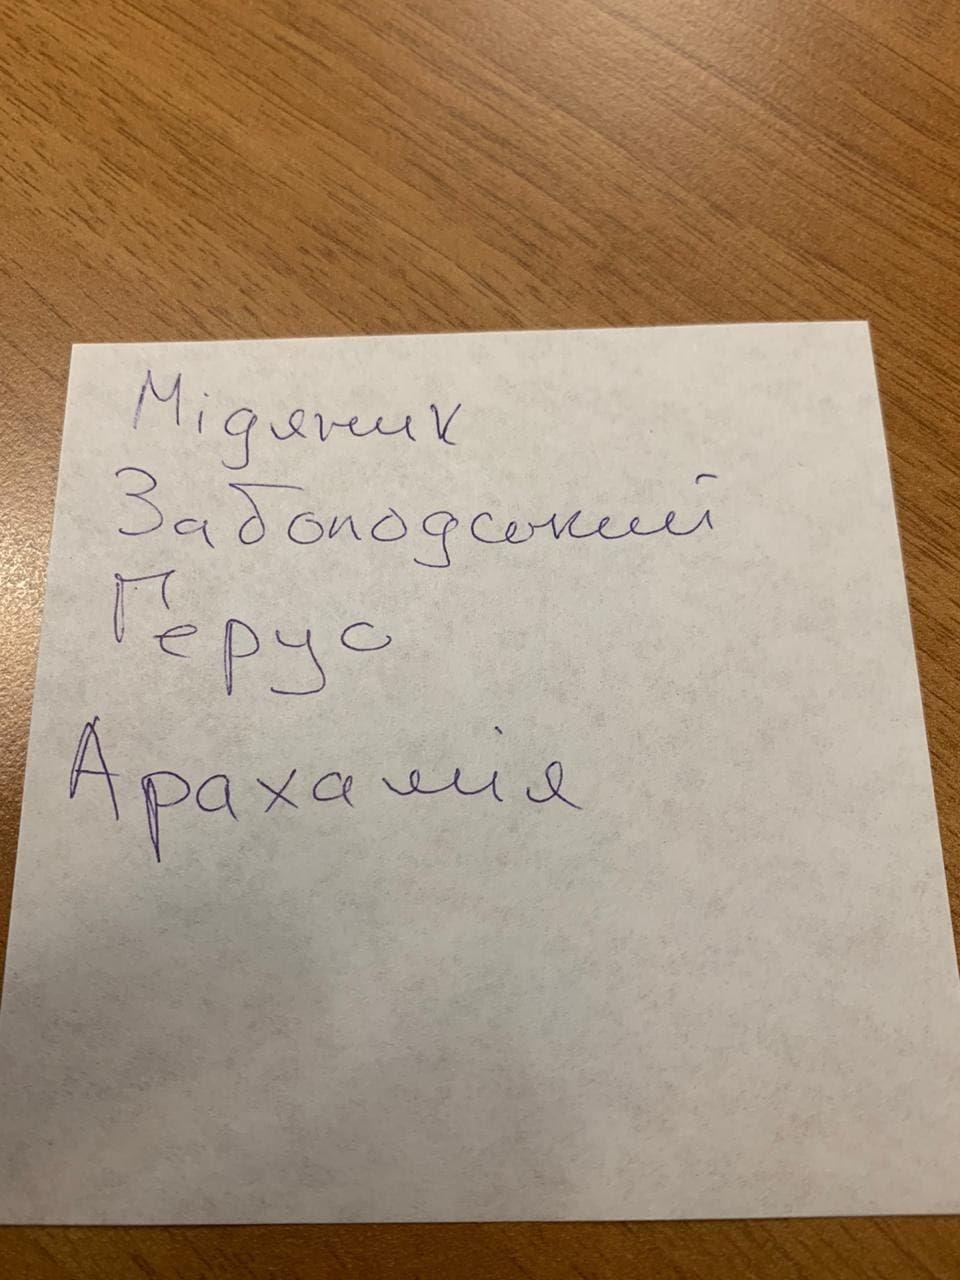 Мідяник
Заболодський
Герус
Арахамія